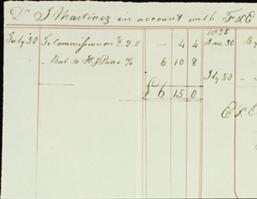 Dr J Martinez in account with F & E
July 30 To Commission on £ 2.0 — 4 4
" Bal to H J Pans 6 10 8
£6 15 0
1825
June 30 By
July 30 -
E & O